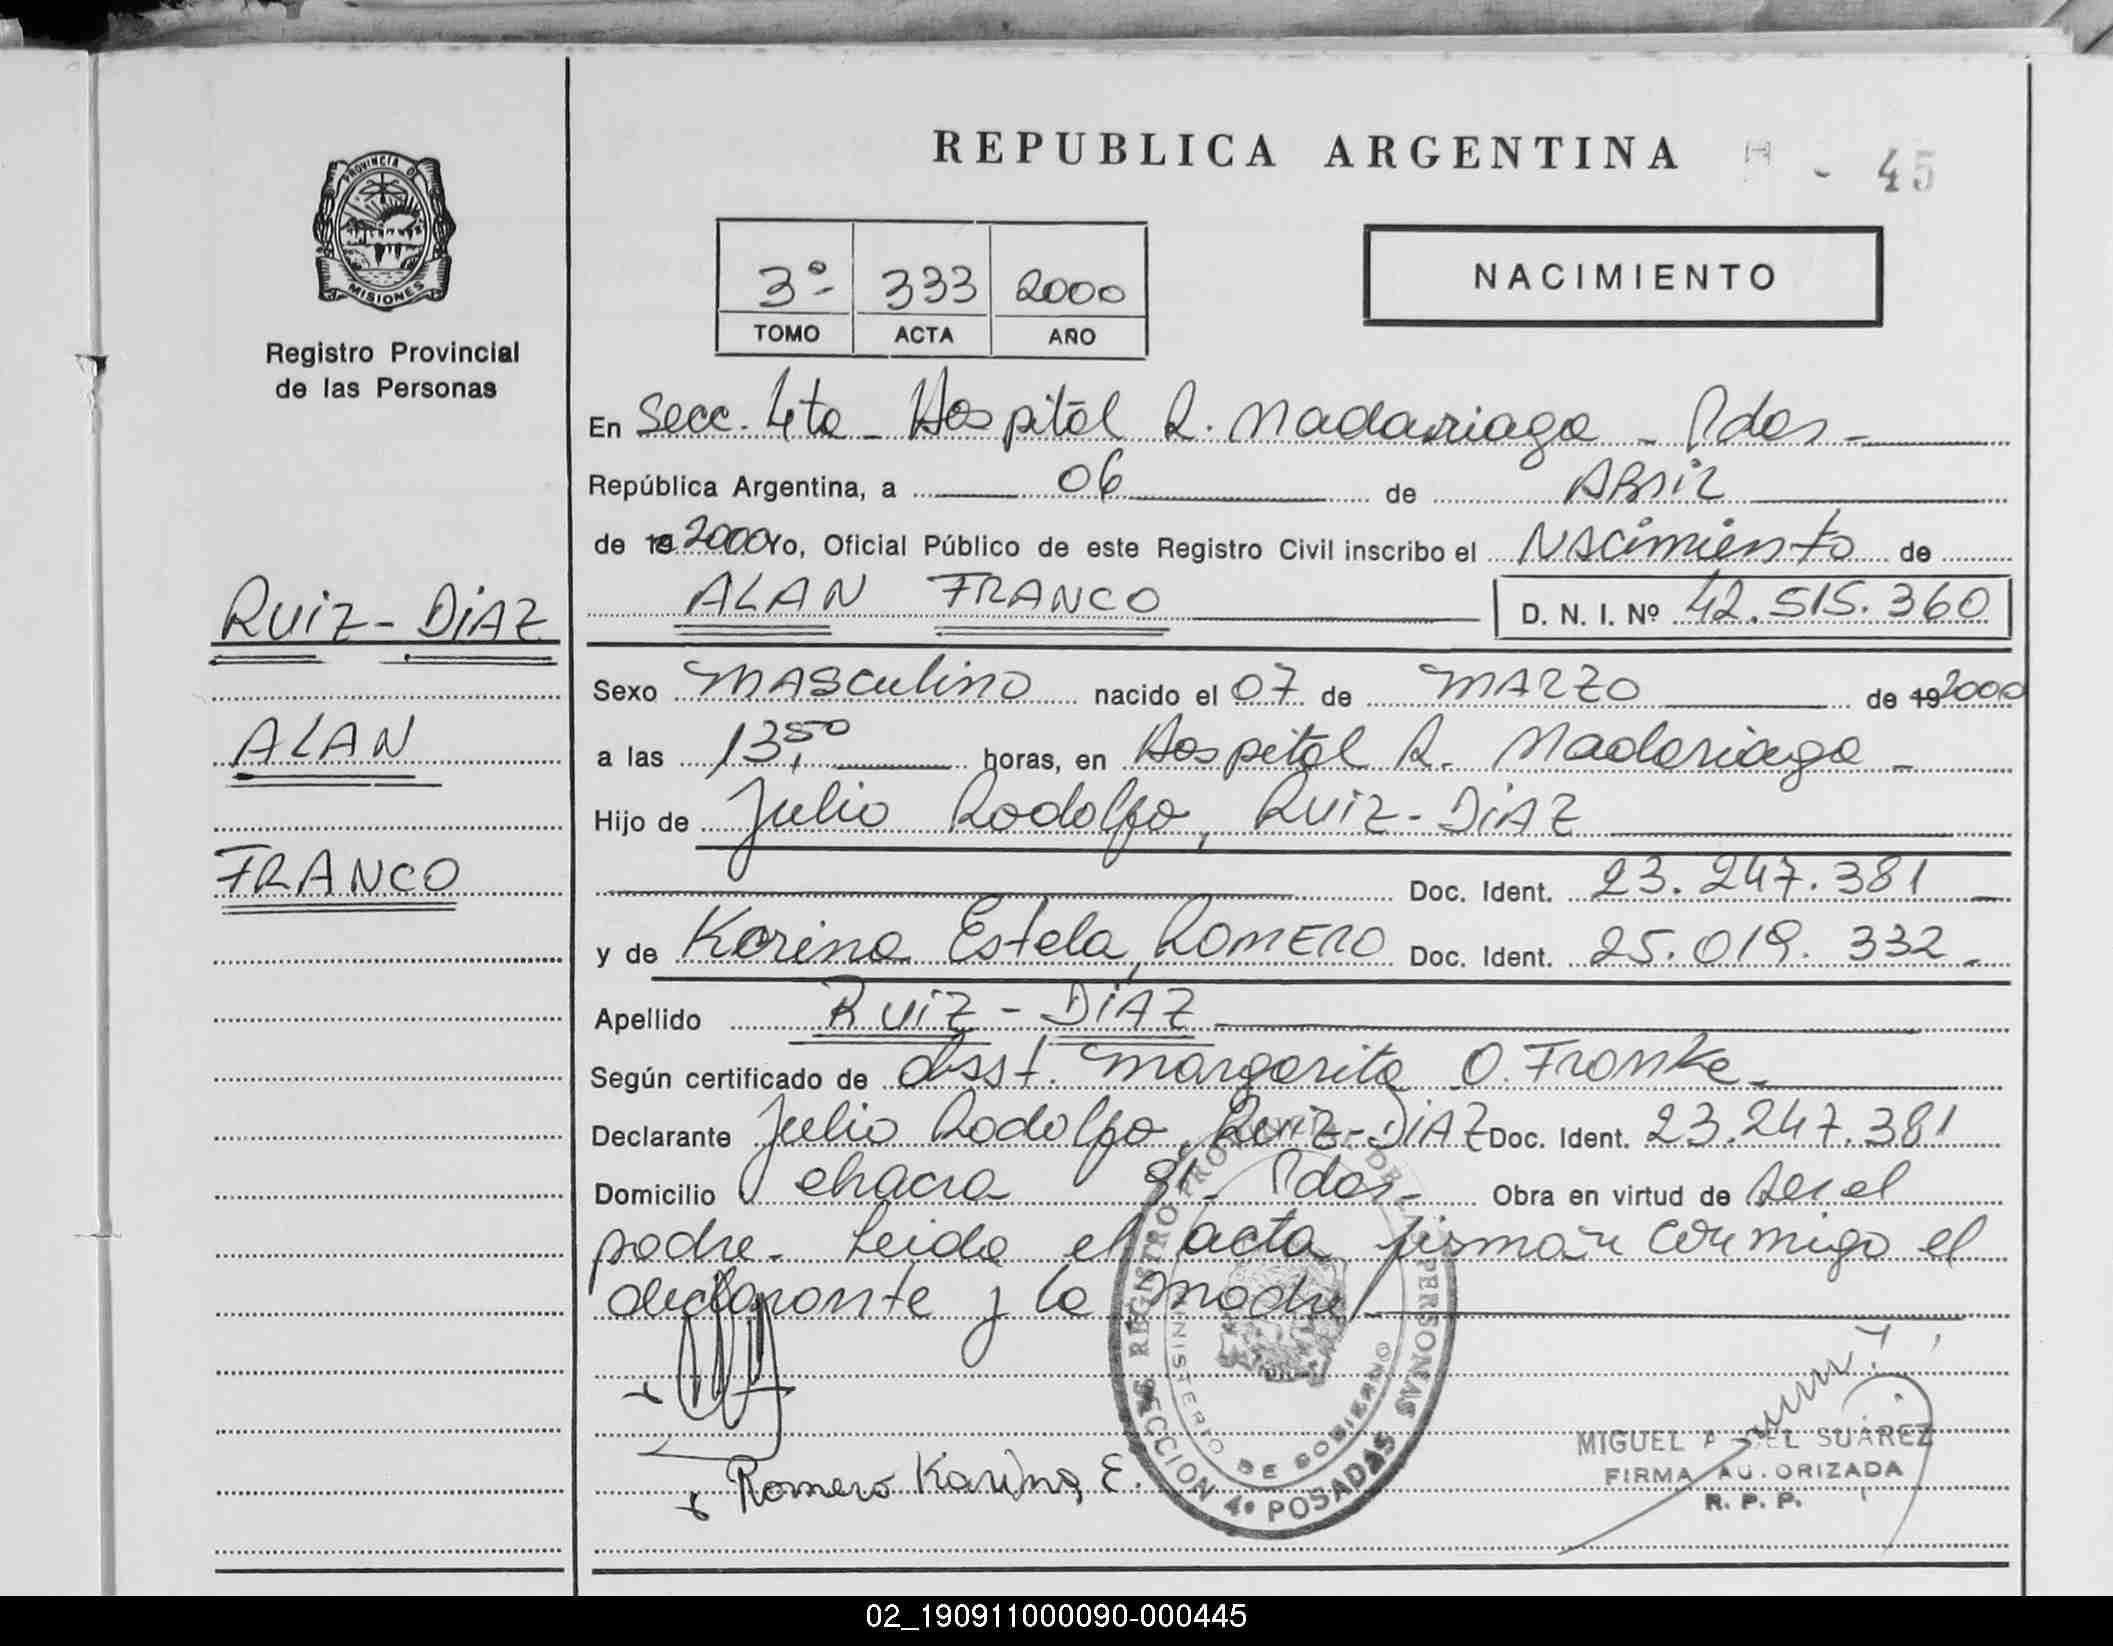 REPUBLICA ARGENTINA
- 45
PROVINCIA D
MISIONES
Registro Provincial
de las Personas
3º 333 2000
TOMO ACTA AÑO
NACIMIENTO
En Secc. 4ta - Hospital R. Madariaga - Pdas -
República Argentina, a 06 de ABRIL
de 19 2000 Yo, Oficial Público de este Registro Civil inscribo el Nacimiento de
ALAN FRANCO D. N. I. Nº 42.515.360
RUIZ - DIAZ
Sexo MASCULINO nacido el 07 de MARZO de 19 2000
ALAN
a las 13,50 horas, en Hospital R. Madariaga -
Hijo de Julio Rodolfo, RUIZ - DIAZ
FRANCO
Doc. Ident. 23.247.381
y de Karina Estela, ROMERO Doc. Ident. 25.019.332
Apellido RUIZ - DIAZ
Según certificado de Obsst. Margarita O. Franke -
Declarante Julio Rodolfo, Ruiz - DIAZ Doc. Ident. 23.247.381
Domicilio chacra Pdas - Obra en virtud de ser el
padre - Leida el acta firman conmigo el
declarante y la madre
REGISTRO PROVINCIAL DE LAS PERSONAS
MINISTERIO DE GOBIERNO
SECCION 4º POSADAS
Romero Karina E.
MIGUEL ANGEL SUAREZ
FIRMA AUTORIZADA
R. P. P.
02_190911000090-000445